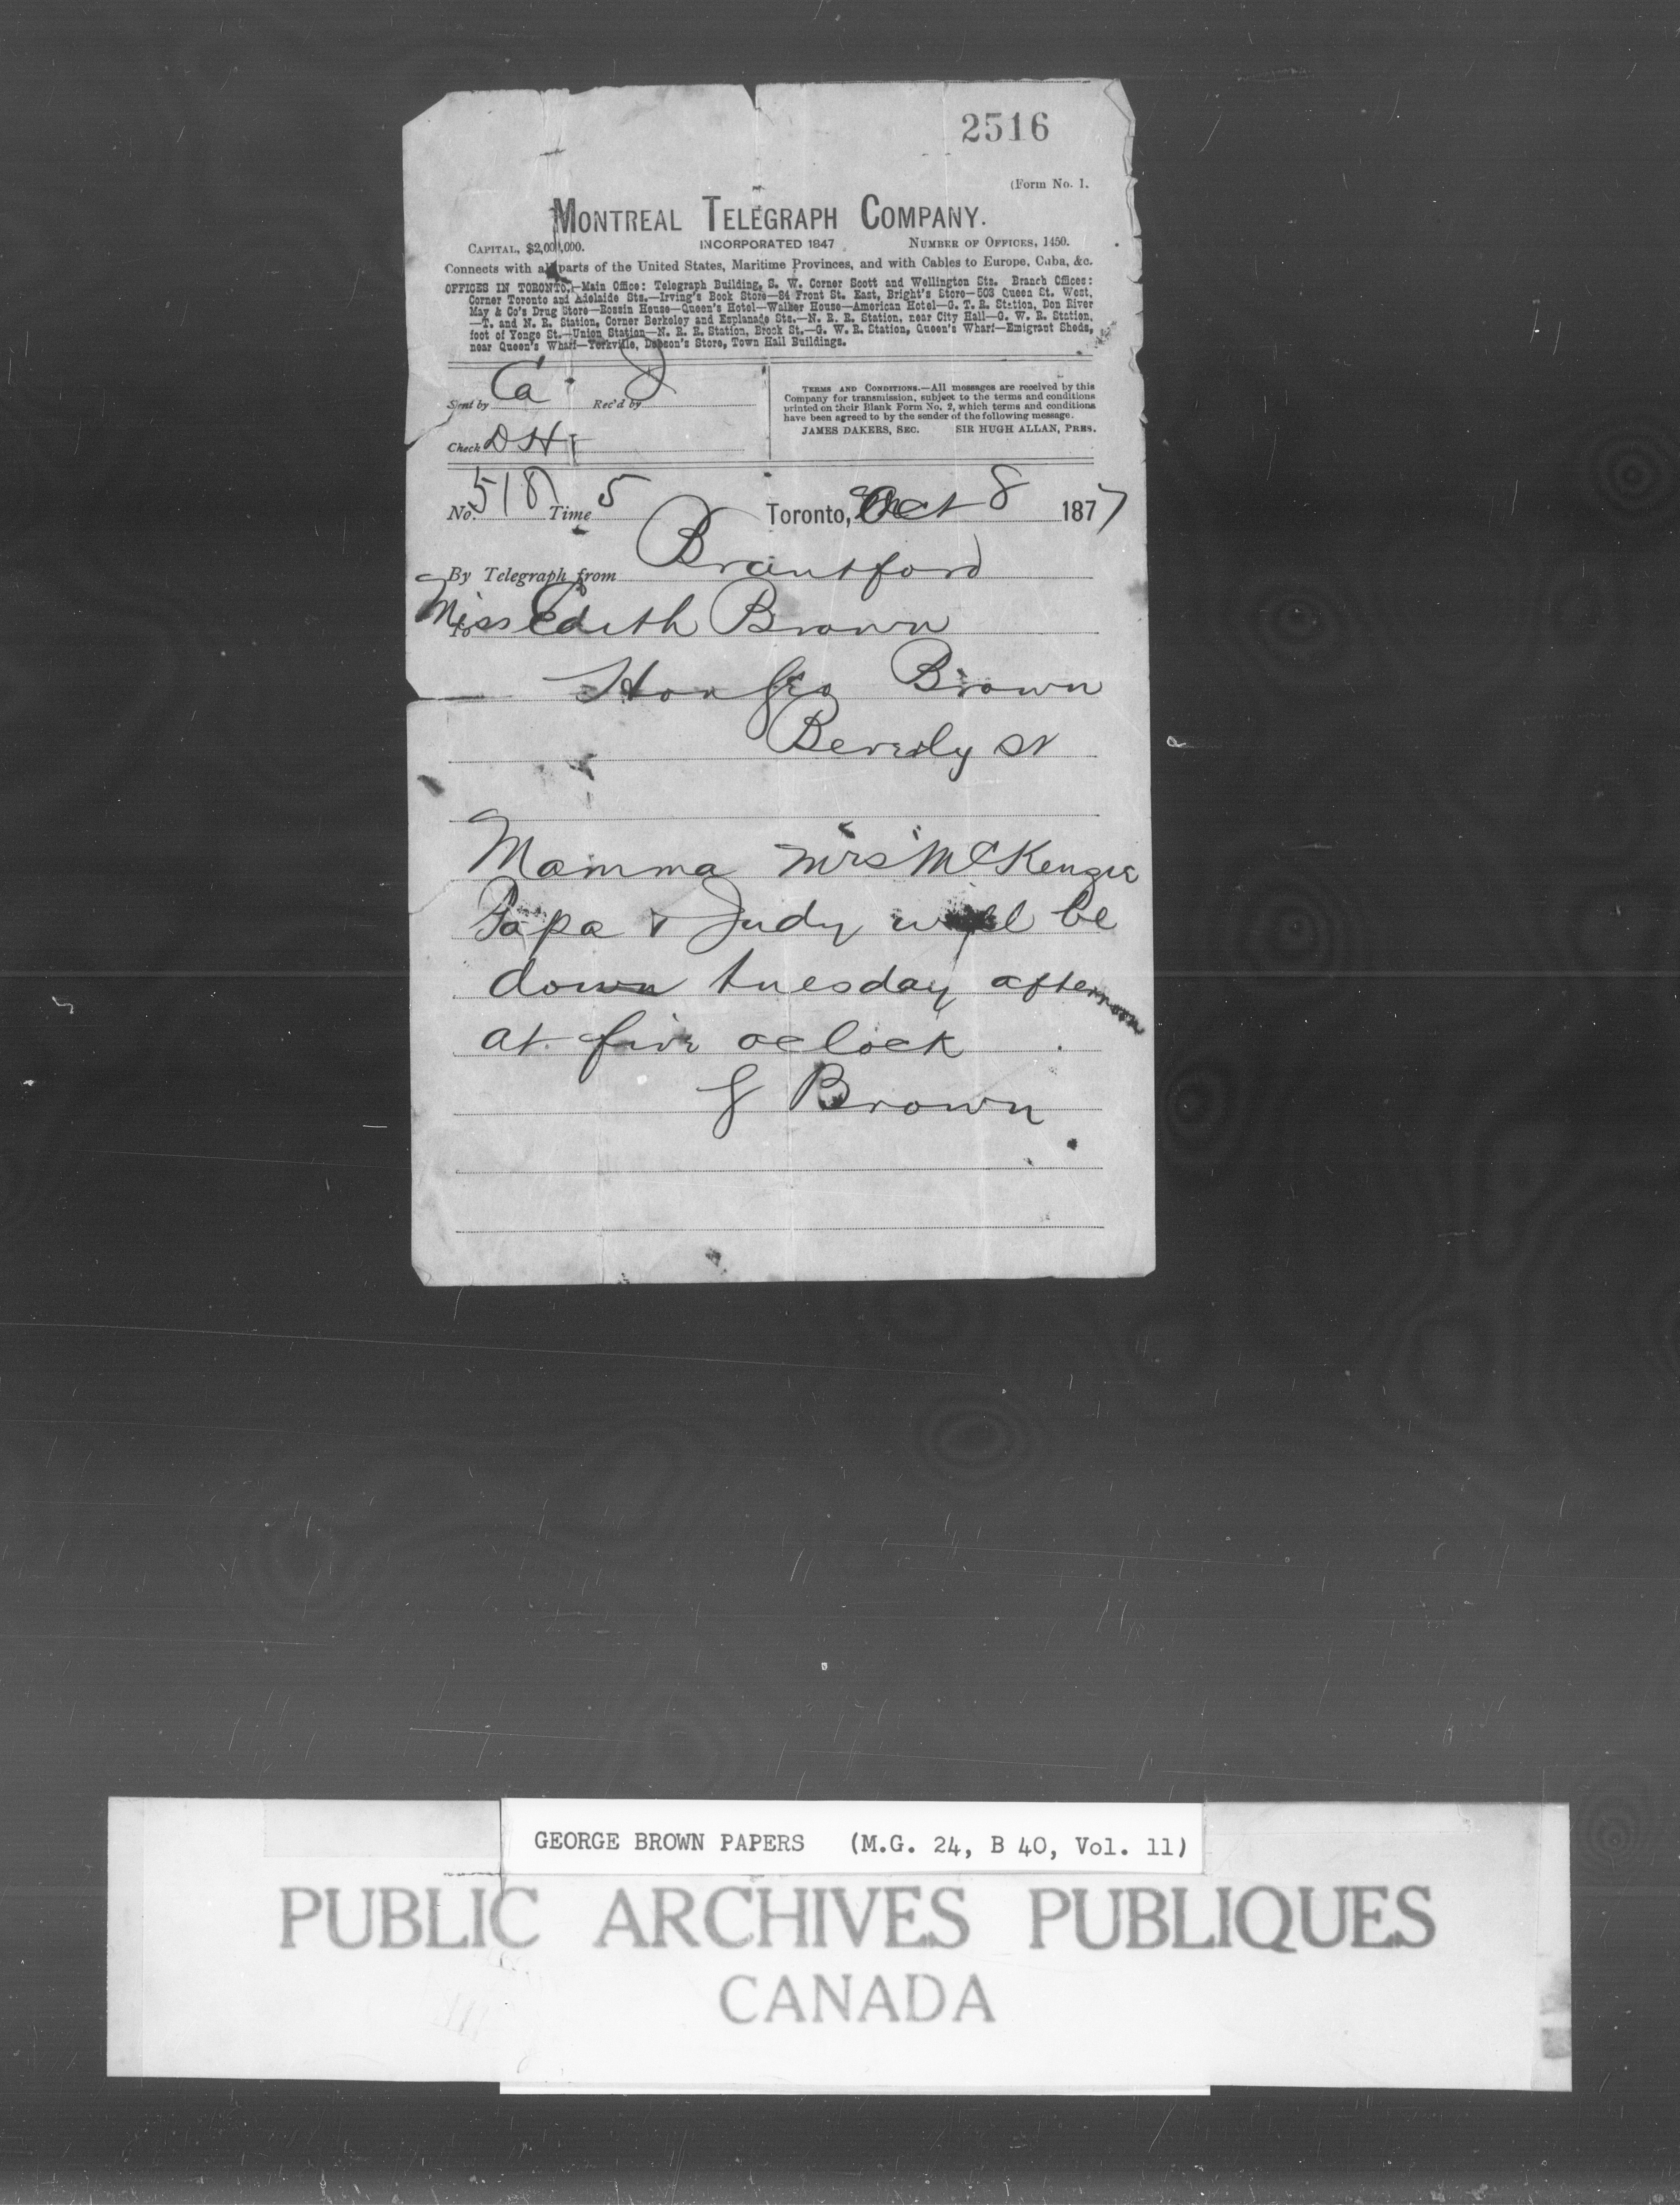 2516
(Form No. 1.
MONTREAL TELEGRAPH COMPANY.
CAPITAL, $2,000,000. INCORPORATED 1847 NUMBER OF OFFICES, 1450.
Connects with all parts of the United States, Maritime Provinces, and with Cables to Europe, Cuba, &c.
OFFICES IN TORONTO.—Main Office: Telegraph Building, S. W. Corner Scott and Wellington Sts. Branch Offices:
Corner Toronto and Adelaide Sts.—Irving's Book Store—84 Front St. East, Bright's Store—503 Queen St. West,
May & Co's Drug Store—Rossin House—Queen's Hotel—Walker House—American Hotel—G. T. R. Station, Don River
—T. and N. R. Station, Corner Berkeley and Esplanade Sts.—N. R. R. Station, near City Hall—G. W. R. Station,
foot of Yonge St.—Union Station—N. R. R. Station, Brock St.—G. W. R. Station, Queen's Wharf—Emigrant Sheds,
near Queen's Wharf—Yorkville, Dobson's Store, Town Hall Buildings.
Sent by Ca Rec'd by
Check DH
TERMS AND CONDITIONS.—All messages are received by this
Company for transmission, subject to the terms and conditions
printed on their Blank Form No. 2, which terms and conditions
have been agreed to by the sender of the following message.
JAMES DAKERS, SEC. SIR HUGH ALLAN, PRES.
No. 518 Time 5 Toronto, Oct 8 1877
By Telegraph from Brantford
To Miss Edith Brown
Hon Geo Brown
Beverly St
Mamma Mrs McKenzie
Papa & Judy will be
down tuesday afternoon
at five oclock
G Brown
GEORGE BROWN PAPERS (M.G. 24, B 40, Vol. 11)
PUBLIC ARCHIVES PUBLIQUES
CANADA